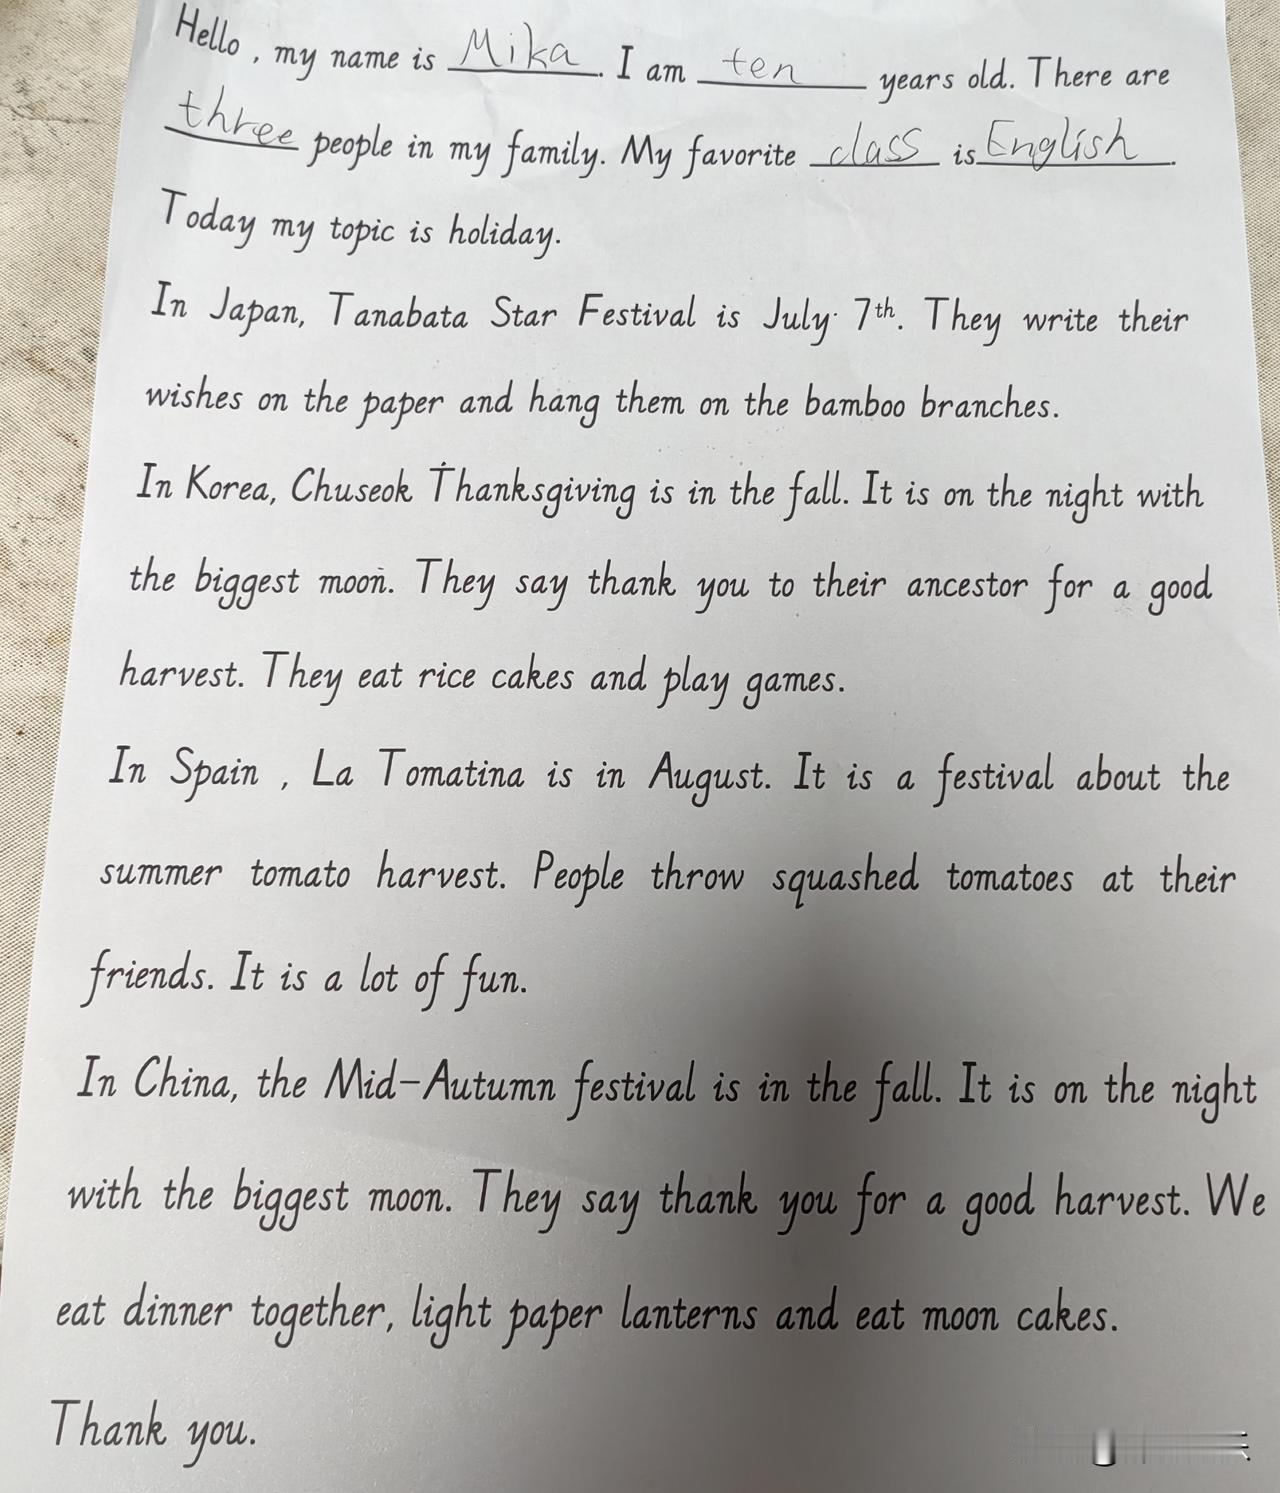 Hello , my name is Mika . I am ten years old. There are
three people in my family. My favorite class is English .
Today my topic is holiday.
In Japan, Tanabata Star Festival is July 7th. They write their
wishes on the paper and hang them on the bamboo branches.
In Korea, Chuseok Thanksgiving is in the fall. It is on the night with
the biggest moon. They say thank you to their ancestor for a good
harvest. They eat rice cakes and play games.
In Spain , La Tomatina is in August. It is a festival about the
summer tomato harvest. People throw squashed tomatoes at their
friends. It is a lot of fun.
In China, the Mid-Autumn festival is in the fall. It is on the night
with the biggest moon. They say thank you for a good harvest. We
eat dinner together, light paper lanterns and eat moon cakes.
Thank you.